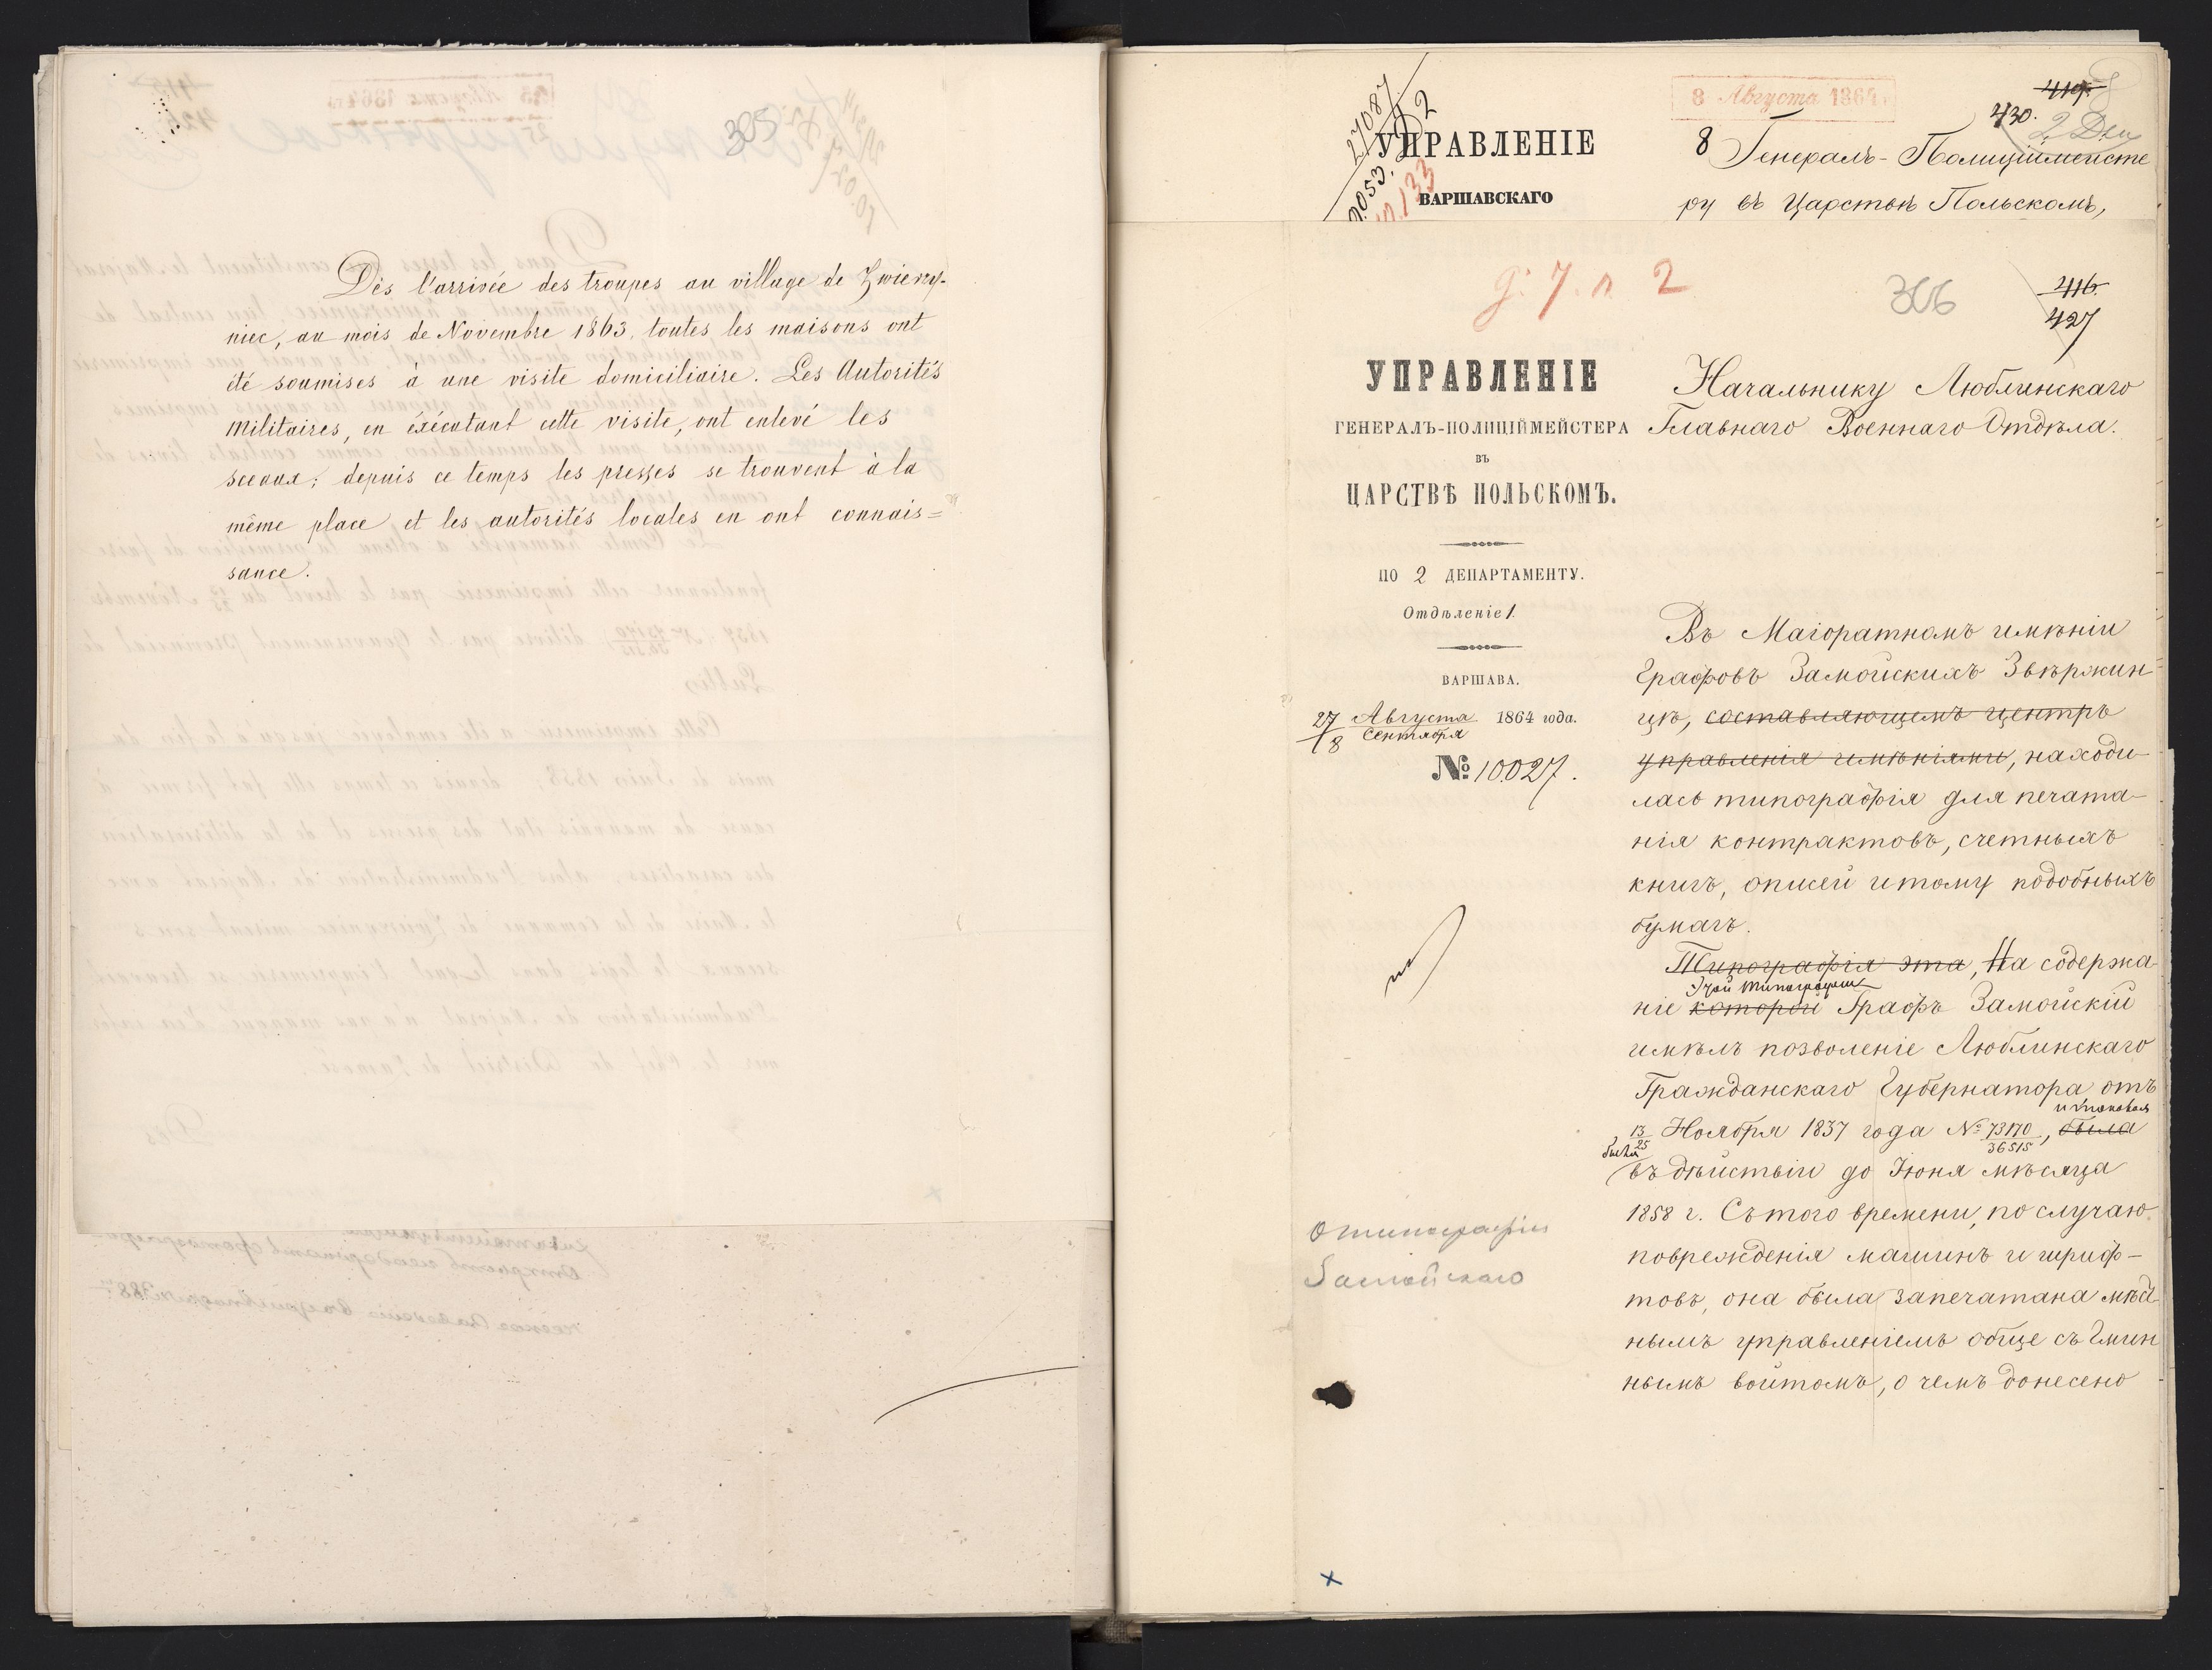 305
Dès l'arrivée des troupes au village de Zwierzy-
niec, au mois de Novembre 1863. toutes les maisons ont
été soumises à une visite domiciliaire. Les Autorités
Militaires, en éxécutant cette visite, ont enlevé les
sceaux; depuis ce temps les presses se trouvent à la
même place et les autorités locales en ont connais=
sance.
27087
2
7053.
133
УПРАВЛЕНІЕ
ВАРШАВСКАГО
8 Августа 1864
419.
430.
2 Деп
8 Генералъ-Полиціймейсте
ру въ Царствѣ Польскомъ,
д. 7. л. 2
306
416.
427
УПРАВЛЕНІЕ
ГЕНЕРАЛЪ-ПОЛИЦІЙМЕЙСТЕРА
ВЪ
ЦАРСТВѢ ПОЛЬСКОМЪ.
ПО 2 ДЕПАРТАМЕНТУ.
Отдѣленіе 1.
ВАРШАВА.
27 Августа 1864 года.
8 Сентября
№ 10027.
О типографіи
Замойскаго
Начальнику Люблинскаго
Главнаго Военнаго Отдѣла.
Въ Маіоратномъ имѣніи
Графовъ Замойскихъ Звѣржин-
цѣ, составляющемъ центръ
управленія имѣніями, находи-
лась типографія для печата-
нія контрактовъ, счетныхъ
книгъ, описей и тому подобныхъ
бумагъ.
Типографія эта, На содержа
этой типографіи
ніе которой Графъ Замойскій
имѣлъ позволеніе Люблинскаго
Гражданскаго Губернатора отъ
и таковая
13/25 Ноября 1837 года № 73170/36515, была
была
въ дѣйствіи до Іюня мѣсяца
1858 г. Съ того времени, по случаю
поврежденія машинъ и шриф-
товъ, она была запечатана мѣст
нымъ управленіемъ обще съ Гмин
нымъ войтомъ, о чемъ донесено